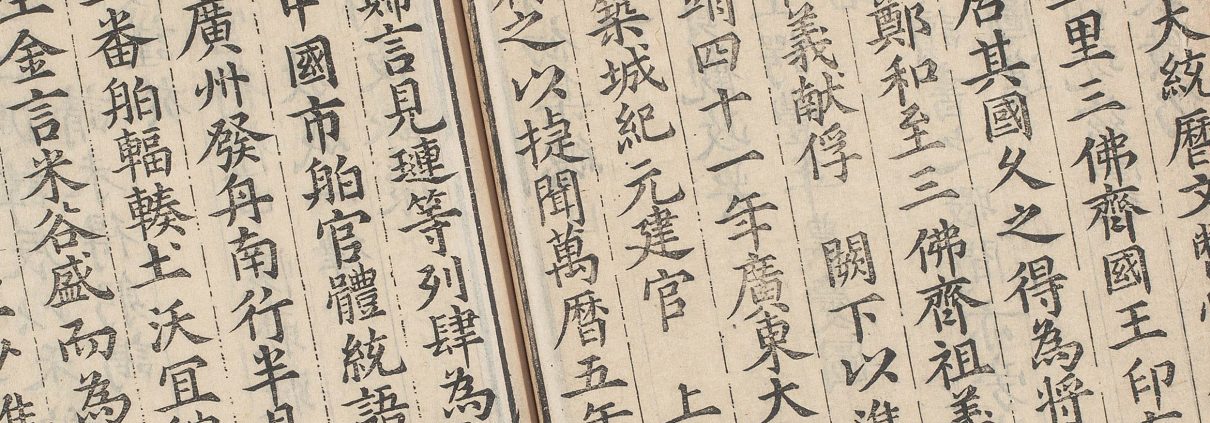 大統曆文
里三佛齊國王印
居其國久之得為將
鄭和至三佛齊祖義
義献俘 闕下以進
靖四十一年廣東大
築城紀元建官 上
之以捷聞萬暦五年
婦言見璉等列肆為
中國市舶官體統語
廣州發舟南行半月
番舶輻輳土沃宜
金言米谷盛而為